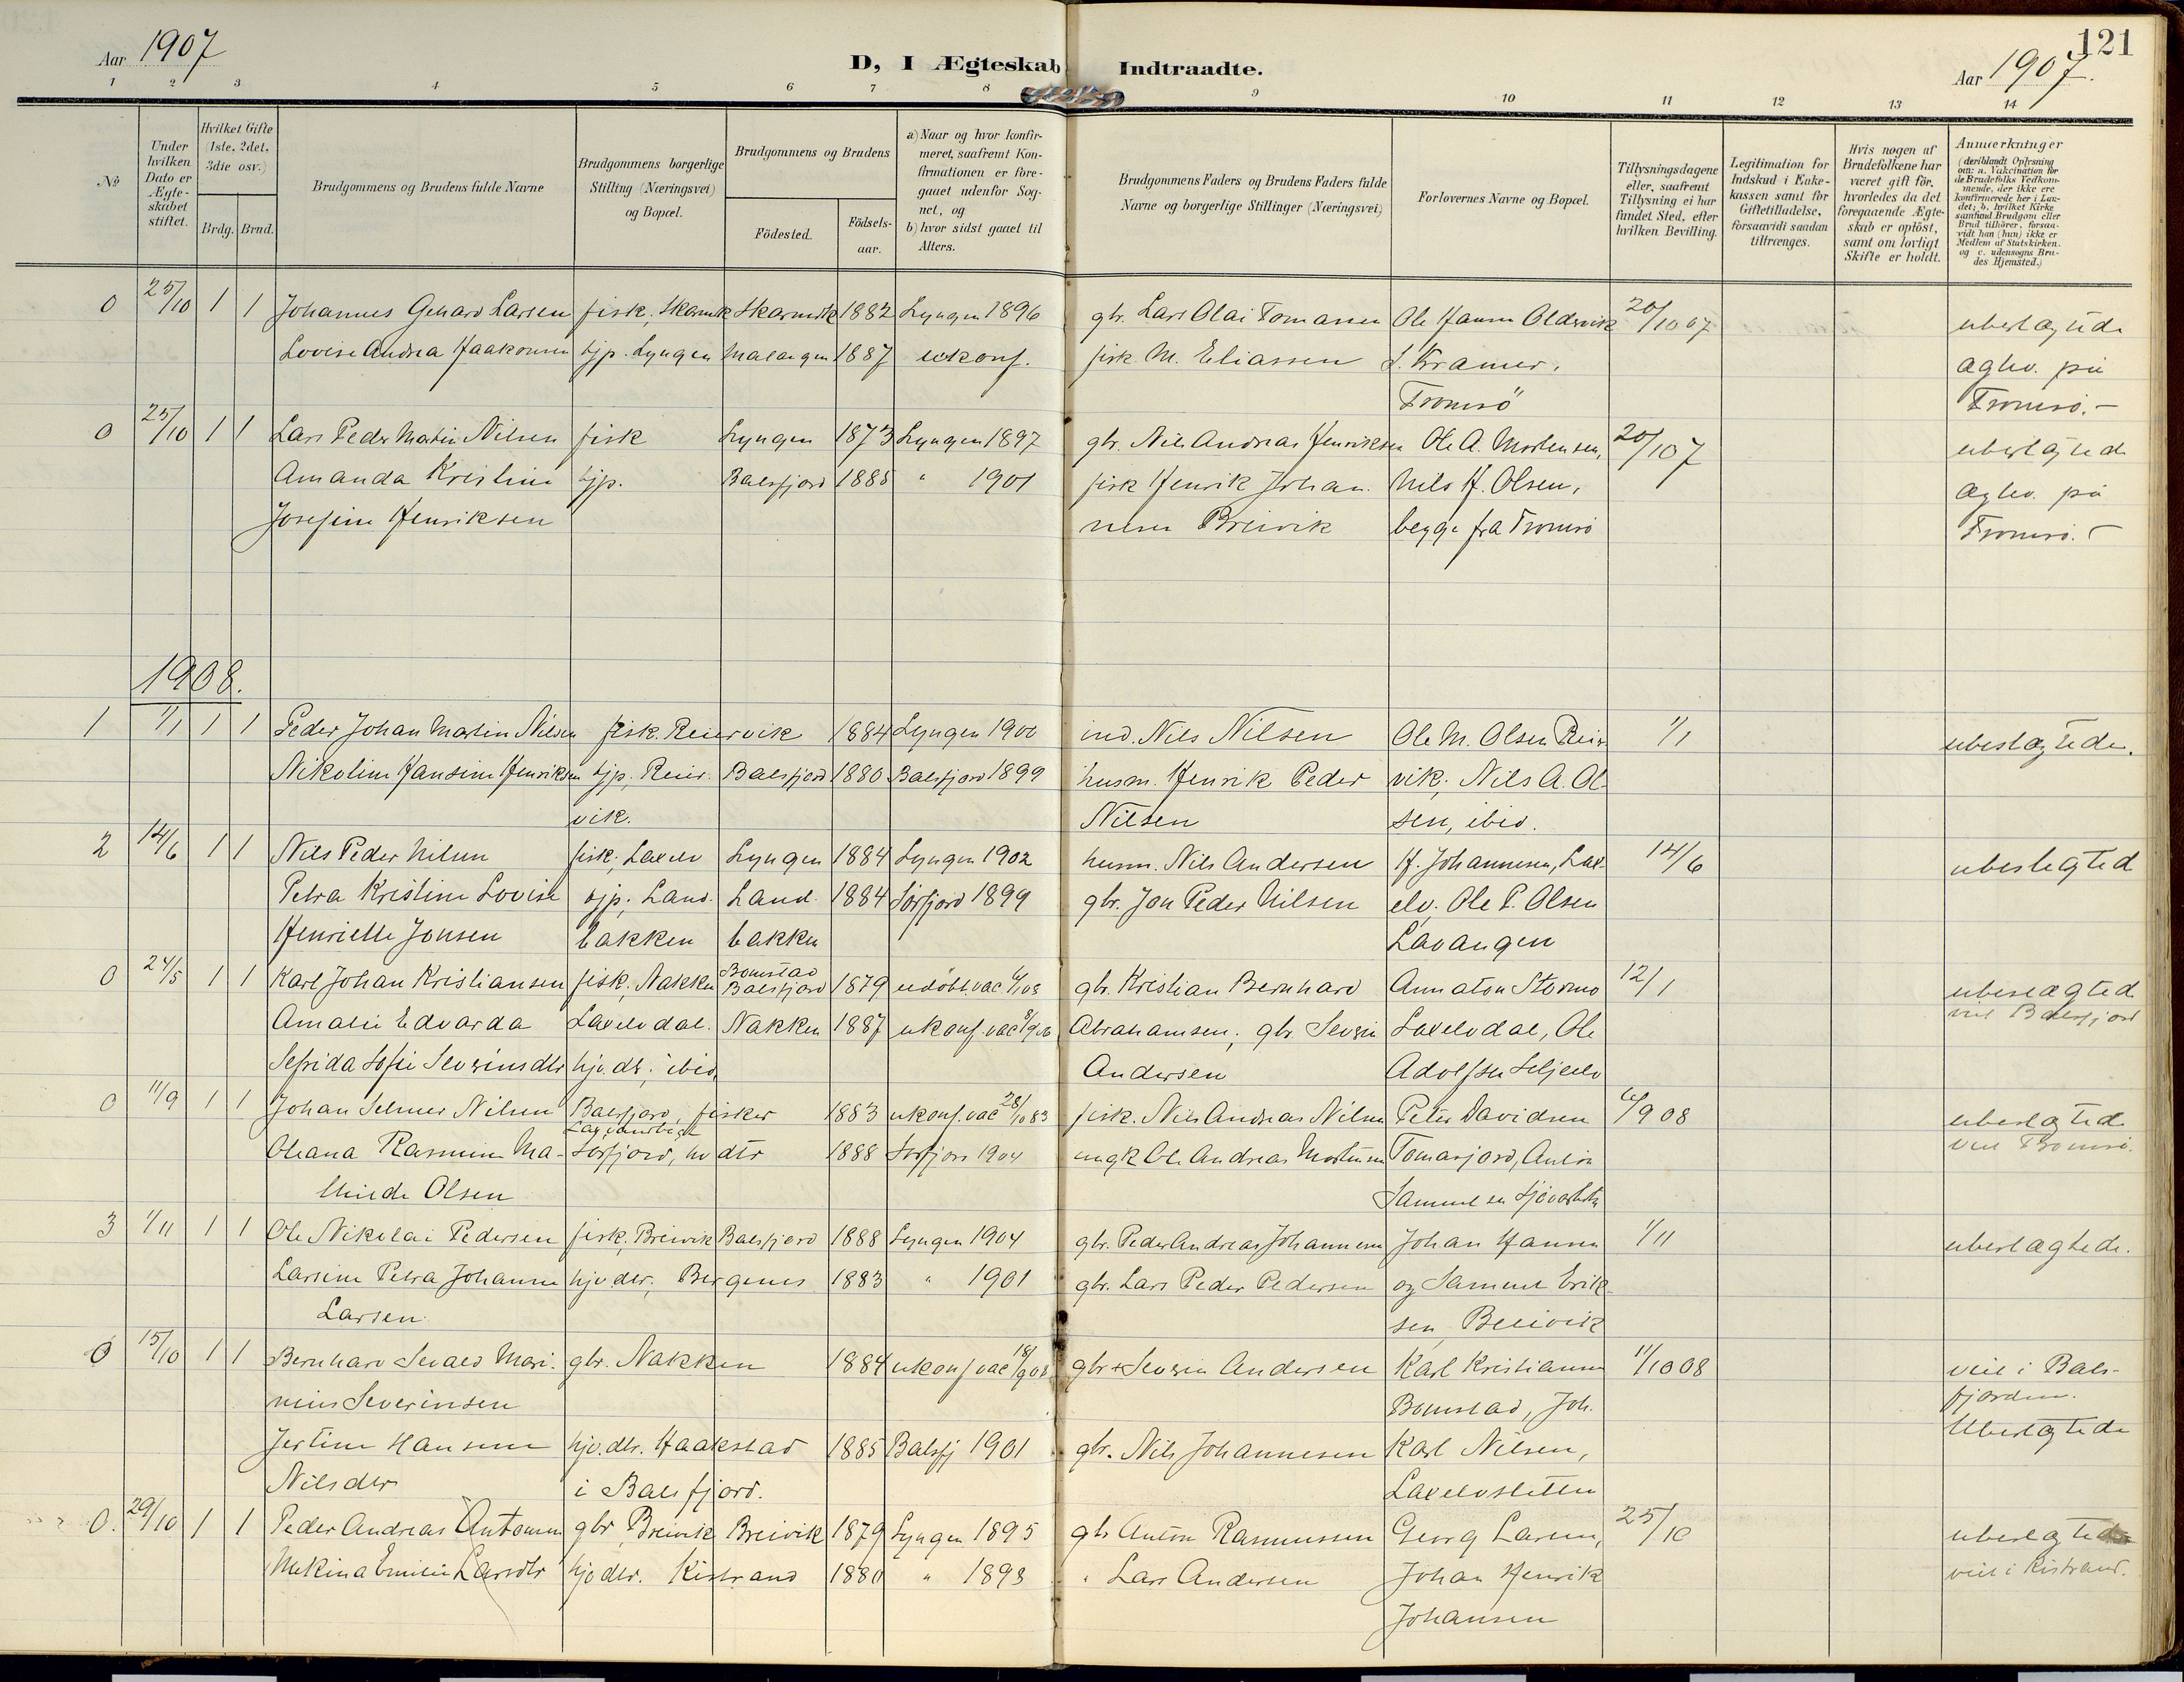 121
Aar 1907
D, I Ægteskab Indtraadte.
Aar 1907.
1 2 3 4 5 6 7 8 9 10 11 12 13 14
№
Under hvilken Dato er Ægte-skabet stiftet.
Hvilket Gifte (1ste, 2det, 3die osv.)
Brdg. Brud.
Brudgommens og Brudens fulde Navne
Brudgommens borgerlige Stilling (Næringsvei) og Bopæl.
Brudgommens og Brudens
Födested.
Födsels-aar.
a) Naar og hvor konfir-meret, saafremt Kon-firmationen er fore-gaaet udenfor Sog-net, og
b) hvor sidst gaaet til Alters.
Brudgommens Faders og Brudens Faders fulde Navne og borgerlige Stillinger (Næringsvei)
Forlovernes Navne og Bopæl.
Tillysningsdagene eller, saafremt Tillysning ei har fundet Sted, efter hvilken Bevilling.
Legitimation for Indskud i Enke-kassen samt for Giftetilladelse, forsaavidt saadan tiltrænges.
Hvis nogen af Brudefolkene har været gift för, hvorledes da det foregaaende Ægte-skab er oplöst, samt om lovligt Skifte er holdt.
Anmærkninger
(deriblandt Oplysning om: a. Vakcination for de Brudefolks Vedkom-mende, der ikke ere konfirmerede her i Lan-det; b. hvilket Kirke-samfund Brudgom eller Brud tilhörer, forsaa-vidt han (hun) ikke er Medlem af Statskirken. og c. udensogns Bru-des Hjemsted.)
0 25/10 1 1 Johannes Gehard Larsen fisk, Skarmk Skarmdk 1882 Lyngen 1896 gbr. Lars Olai Tomassen Ole Hansen Oldervik 20/10 07 ubeslægtede
Lovise Andrea Haakonsen tjp. Lyngen Malangen 1887 ukonf. fisk. M. Eliassen J. Kramer, ægtev. på
Tromsö Tromsö.-
0 25/10 1 1 Lars Peder Martin Nilsen fisk Lyngen 1873 Lyngen 1897 gbr. Nils Andreas Henriksen Ole A. Mortensen, 20/10 7 ubeslægted
Amanda Kristine tjp. Balsfjord 1885 " 1901 fisk Henrik Johan. Nils H. Olsen, ægtev. på
Josefine Henriksen nesen Breivik begge fra Tromsö Tromsö. -
1908.
1 1/1 1 1 Peder Johan Martin Nilsen fisk. Reiervik 1884 Lyngen 1900 ind. Nils Nilsen Ole M. Olsen Reir 1/1 ubeslægtede.
Nikoline Hansine Henriksen tjp, Reir. Balsfjord 1880 Balsfjord 1899 husm. Henrik Peder vik; Nils A. Ol-
vik. Nilsen sen, ibid.
2 14/6 1 1 Nils Peder Nilsen fisk; Laxelv Lyngen 1884 Lyngen 1902 husm. Nils Andersen H. Johannesen, Lax- 14/6 ubeslegted
Petra Kristine Lovise tjp; Land. Land. 1884 Sörfjord 1899 gbr. Jon Peder Nilsen elv. Ole P. Olsen
Henriette Jonsen bakken bakken Lavangen
0 24/5 1 1 Karl Johan Kristiansen fisk, Nakken Bomstad Balsfjord 1879 udöbt. vac gbr. Kristian Bernhard Annaton Stormo 12/1 ubeslægted
Amalie Edvarda Laxelvdal. Nakken 1887 ukonf. vac Abrahamsen; gbr Severin Laxelvdal, Ole viet Balsfjord
Sefrida Sofie Severinsdtr hjv. dt; ibid, Andersen Adolfsen Seljeelv
0 11/9 1 1 Johan Selmer Nilsen Balsfjord, fisker 1883 ukonf. vac 28/10 83 fisk. Nils Andreas Nilsen Peter Davidsen 6/9 08 ubeslægted
Oleana Rasmine Ma- Sörfjord, hv dtr 1888 Sörfjord 1904 ungk Ole Andreas Mortensen Tomasjord, Anton viet Tromsö.
thilde Olsen Samuelsen
3 1/11 1 1 Ole Nikolai Pedersen fisk, Breivik Balsfjord 1888 Lyngen 1904 gbr. Peder Andreas Johannesen Johan Hansen 1/11 ubeslægtede.
Larsine Petra Johanne hjv dtr, Bergenes 1883 " 1901 gbr. Lars Peder Pedersen og Samuel Erik-
Larsen. sen, Breivik
0 15/10 1 1 Bernhard Sevald Mari- gbr. Nakken 1884 ukonf vac 18/9 08 gbr + Severin Andersen Karl Kristiansen 11/10 08 viet i Bals-
nius Severinsen Bomstad, Joh. fjorden.
Jertine Hansine hjv. dtr. Haakstad 1885 Balsfj 1901 gbr. Nils Johannesen Karl Nilsen, Ubeslægtede
Nilsdtr i Balsfjord. Laxelvsletten
0. 29/10 1 1 Peder Andreas Antonsen gbr, Breivik Breivik 1879 Lyngen 1895 gb Anton Rasmussen Georg Larsen, 25/10 ubeslægtede
Mekina Emilie Larsdtr hjv dtr. Kistrand 1880 " 1893 " Lars Andersen Johan Henrik viet i Kistrand.
Johansen